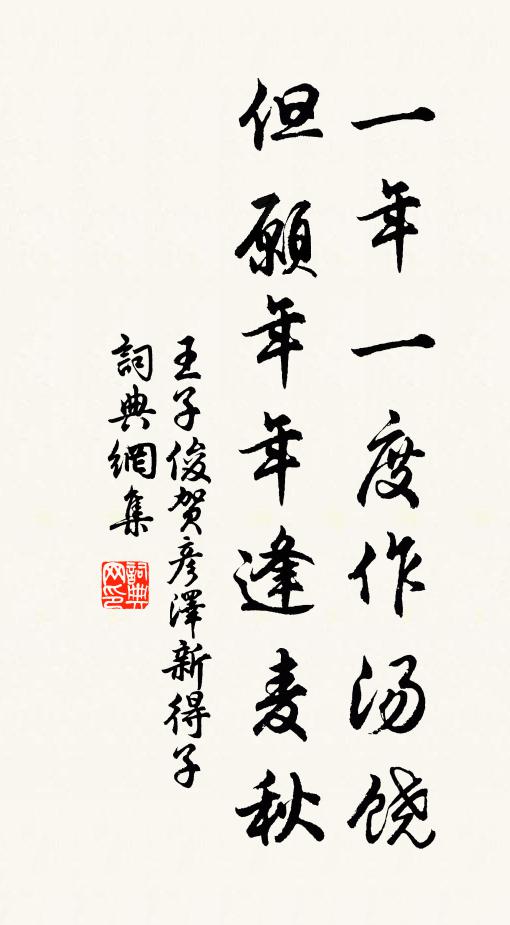 一年一度作汤饶
但愿年年逢麦秋
王子俊贺彦泽新得子
詞典網集
詞典网印